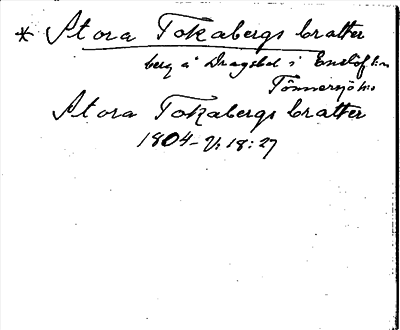 * Stora Tokabergs bratter
berg å Dragsbol i Enslöf sn
Tönnersjö hd
Stora Tokabergs bratter
1804 18:27